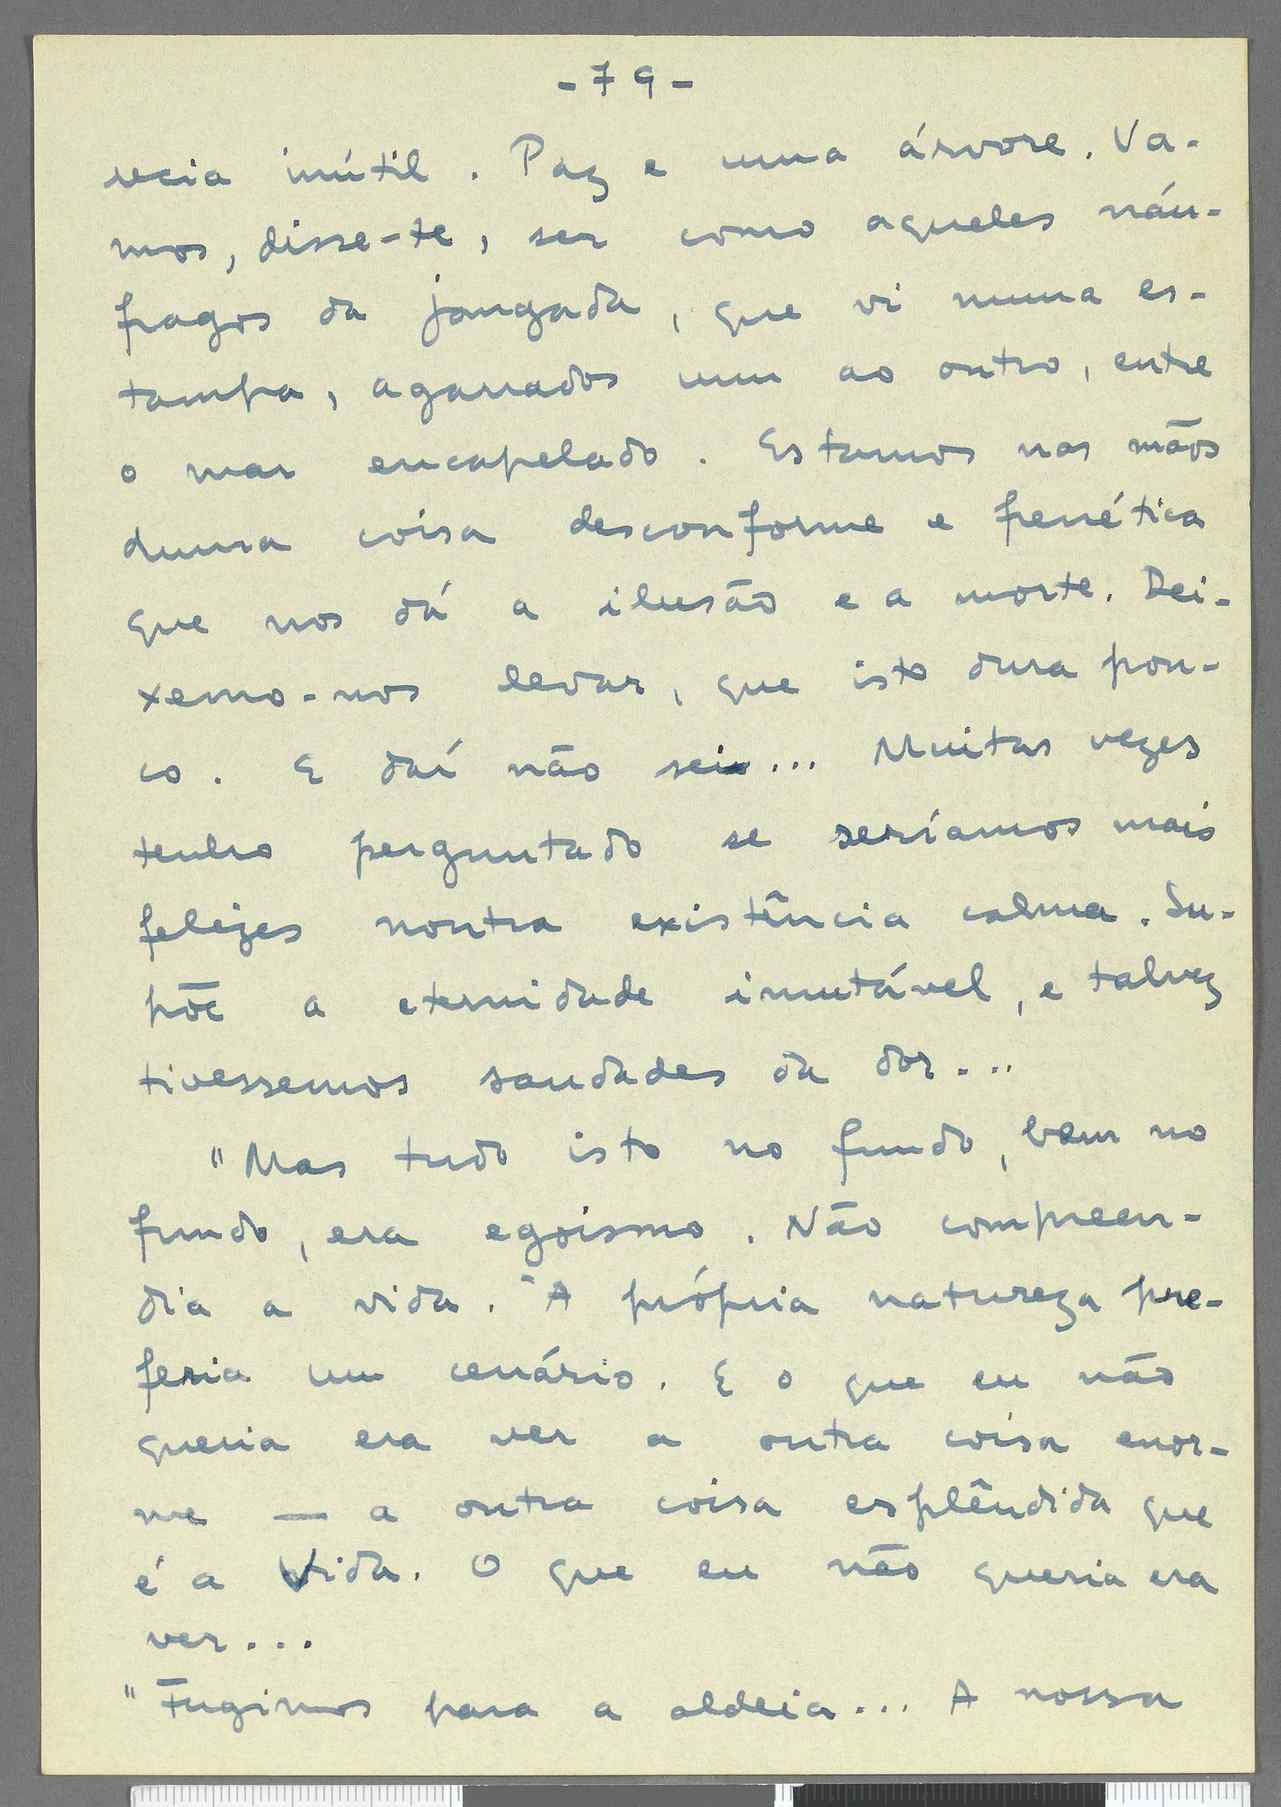 - 79 -
recia inútil. Paz e uma árvore. Va-
mos, disse-te, ser como aqueles náu-
fragos da jangada, que vi numa es-
tampa, agarrados um ao outro, entre
o mar encapelado. Estamos nas mãos
duma coisa desconforme e frenética
que nos dá a ilusão e a morte. Dei-
xemo-nos levar, que isto dura pou-
co. E daí não sei... Muitas vezes
tenho perguntado se seríamos mais
felizes noutra existência calma. Su-
põe a eternidade imutável, e talvez
tivessemos saudades da dor...
"Mas tudo isto no fundo, bem no
fundo, era egoismo. Não compreen-
dia a vida. À própria natureza pre-
feria um cenário. E o que eu não
queria era ver a outra coisa enor-
me — a outra coisa esplêndida que
é a Vida. O que eu não queria era
ver...
"Fugimos para a aldeia... A nossa